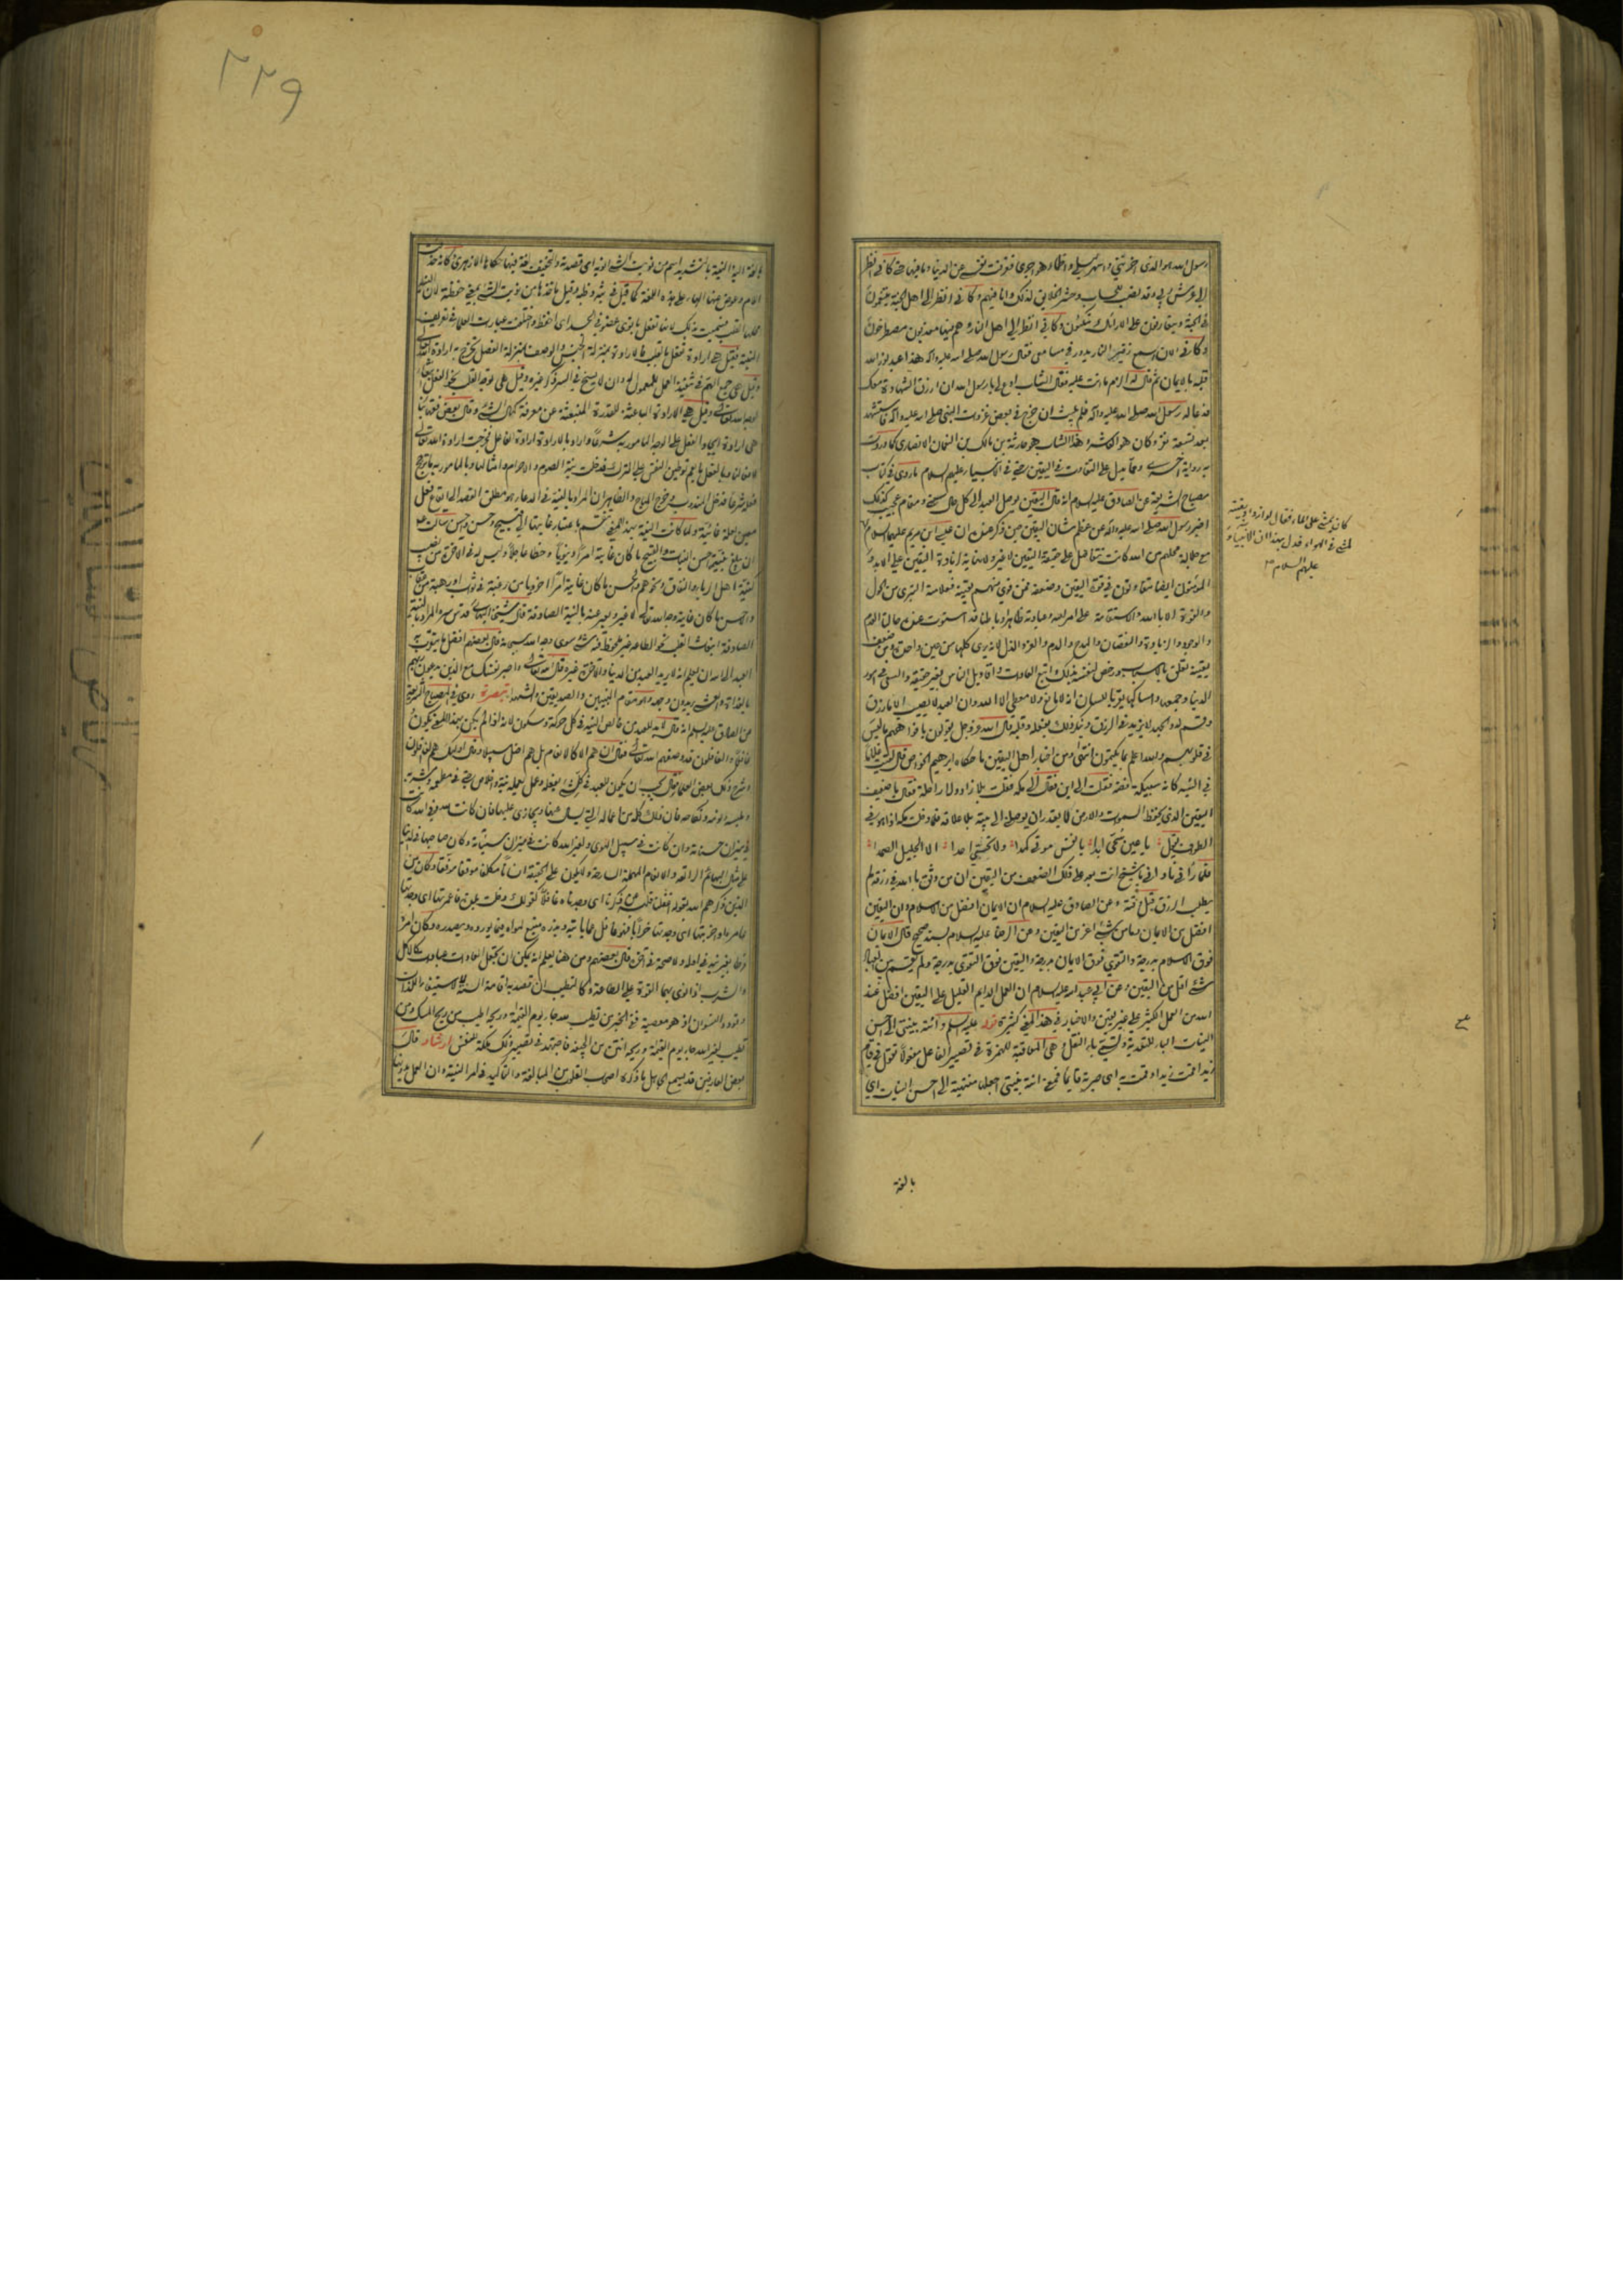 رسول الله هو الذي احزنني واسهر ليلي واظمأ هواجري فعزفت نفسي عن الدنيا وما فيها حتى كاني انظر
الى عرش ربي وقد نصب للحساب وحشر الخلايق لذلك وانا فيهم وكاني انظر الى اهل الجنة يتنعمون
في الجنة ويتعارفون على الارائك متكئون وكاني انظر الى اهل النار وهم فيها معذبون مصطرخون
وكاني الان اسمع زفير النار يدور في مسامعي فقال رسول الله صلى الله عليه واله هذا عبد نور الله
قلبه بالايمان ثم قال له الزم ما انت عليه فقال الشاب ادع لي يا رسول الله ان ارزق الشهادة معك
فدعا له رسول الله صلى الله عليه واله فلم يلبث ان خرج في بعض غزوات النبي صلى الله عليه واله فاستشهد
بعد تسعة نفر وكان هو العاشر وهذا الشاب هو حارثة بن مالك بن النعمان الانصاري كما وردت
به رواية اخرى ومما يدل على التفاوت في اليقين حتى في الانبياء عليهم السلام ما روي في كتاب
مصباح الشريعة عن الصادق عليه السلام انه قال اليقين يوصل العبد الى كل حال سني ومقام عجيب كذلك
اخبر رسول الله صلى الله عليه واله عن عظم شان اليقين حين ذكر عنده ان عيسى ابن مريم عليهما السلام
كان يمشي على الماء فقال لو ازداد يقينه
لمشى في الهواء فدل بهذا ان الانبياء
عليهم السلام
مع جلالة محلهم من الله كانت تتفاضل على حقيقة اليقين لا غير ولا نهاية لزيادة اليقين على الابد و
المؤمنون ايضا متفاوتون في قوة اليقين وضعفه فمن قوي منهم يقينه فعلامته التبري من الحول
والقوة الا بالله والاستقامة على امر الله وعبادته ظاهرا وباطنا قد استوت عنده حالتا العدم
والوجود والزيادة والنقصان والمدح والذم والعز والذل لانه يرى كلها من عين واحدة ومن ضعف
يقينه تعلق بالاسباب ورخص لنفسه بذلك واتبع العادات واقاويل الناس بغير حقيقة والسعي في امور
الدنيا وجمعها وامساكها يقر باللسان انه لا مانع ولا معطي الا الله وان العبد لا يصيب الا ما رزق
وقسم له والجهد لا يزيد في الرزق وينكر ذلك بفعله وقلبه قال الله عز وجل يقولون بافواههم ما ليس
في قلوبهم والله اعلم بما يكتمون انتهى ومن اخبار اهل اليقين ما حكاه ابرهيم الخواص قال لقيت غلاما
في التيه كانه سبيكة فضة فقلت الى اين فقال الى مكة فقلت بلا زاد ولا راحلة فقال يا ضعيف
اليقين الذي يحفظ السموات والارض لا يقدر ان يوصلني الى بيته بلا علاقة فلما دخلت مكة اذا هو في
الطواف يقول يا عين سحي ابدا يا نفس موتي كمدا ولا تحبي احدا الا الجليل الصمدا
فلما رآني ناداني يا شيخ انت بعد على ذلك الضعف من اليقين ان من وثق بالله في رزقه لم
يطلب الرزق قبل وقته وعن الصادق عليه السلام ان الايمان افضل من الاسلام وان اليقين
افضل من الايمان وما من شيء اعز من اليقين وعن الرضا عليه السلام بسند صحيح قال الايمان
فوق الاسلام بدرجة والتقوى فوق الايمان بدرجة واليقين فوق التقوى بدرجة ولم يقسم بين العباد
شيء اقل من اليقين وعن ابي عبد الله عليه السلام ان العمل الدايم القليل على اليقين افضل عند
الله من العمل الكثير على غير يقين والاخبار في هذا المعنى كثيرة قوله عليه السلام وانته بنيتي الى احسن
النيات الباء للتعدية وتسمى باء النقل وهي المعاقبة للهمزة في تصيير الفاعل مفعولا تقول في قام
زيد اقمت زيدا وقمت به اي صيرته قايما فمعنى انته بنيتي اجعلها منتهية الى احسن النيات اي
بالغة
٢٢٩
بالغة اليه النية بالتشديد اسم من نويت الشيء انويه اي قصدته والتخفيف لغة فيها حكاها الازهري كانه حذفت
اللام وعوض عنها الهاء على هذه اللغة كما قيل في ثبة وظبة وقيل ماخذها من نويت الشيء بمعنى حفظته لان النية
محلها القلب فسميت بذلك لانها تفعل بانوى عضو في الجسد اي احفظ واختلفت عبارات العلماء في تعريف
النية فقيل هي ارادة تفعل بالقلب فالارادة بمنزلة الجنس والوصف بمنزلة الفصل تخرج به ارادة الله تعالى
وقيل هي جمع الهم في تنفيذ العمل للمعمول له وان لا يسنح في السر ذكر غيره وقيل هي توجه القلب نحو الفعل ابتغاء
لوجه الله تعالى وقيل هي الارادة الباعثة للقدرة المنبعثة عن معرفة كمال الشيء وقال بعض فقهائنا
هي ارادة ايجاد الفعل على الوجه المامور به شرعا واراد بالارادة ارادة الفاعل فخرجت ارادة الله تعالى
لافعالنا وبالفعل ما يعم توطين النفس على الترك فدخلت نية الصوم والاحرام وامثالها وبالمامور به ما ترجح
فعله شرعا فدخل المندوب وخرج المباح والظاهر ان المراد بالنية في الدعاء هو مطلق القصد الى ايقاع فعل
معين لعلة غائية ولما كانت النية بهذا المعنى تنقسم باعتبار غايتها الى قبيح وحسن واحسن سأل عم
ان يبلغ بنيته احسن النيات والقبيح ما كان غايته امرا دنيويا وحظا عاجلا وليس له في الاخرة من نصيب
كنية اهل الرياء والنفاق ونحوهم والحسن ما كان غايته امرا اخرويا من رغبة في ثواب او رهبة من عقاب
والاحسن ما كان غايته وجه الله تعالى لا غير ويعبر عنه بالنية الصادقة قال شيخنا البهائي قدس سره المراد بالنية
الصادقة انبعاث القلب نحو الطاعة غير ملحوظ فيه شيء سوى وجه الله سبحانه قال بعضهم افضل ما يتقرب به
العبد الى الله ان يعلم انه لا يريد العبد من الدنيا والاخرة غيره قال الله تعالى واصبر نفسك مع الذين يدعون ربهم
بالغداة والعشي يريدون وجهه وهو مقام النبيين والصديقين والشهداء تبصرة روي في مصباح الشريعة
عن الصادق عليه السلام انه قال لا بد للعبد من خالص النية في كل حركة وسكون لانه اذا لم يكن بهذا المعنى يكون
غافلا والغافلون قد وصفهم الله تعالى فقال ان هم الا كالانعام بل هم اضل سبيلا وقال اولئك هم الغافلون
وشرح ذلك بعض العلماء فقال يجب ان يكون للعبد في كل شيء يفعله وعمل يعمله نية واخلاص حتى في مطعمه ومشربه
وملبسه ونومه ونكاحه فان ذلك كله من اعماله التي يسال عنها ويجازى عليها فان كانت لله وفي الله كانت
في ميزان حسناته وان كانت في سبيل الهوى ولغير الله كانت في ميزان سيئاته وكان صاحبها في الدنيا
على مثال البهائم الراتعة والانعام المهملة السارحة ولا يكون على الحقيقة انسانا مكلفا موفقا وكان من
الذين ذكرهم الله بقوله اغفلنا قلبه عن ذكرنا اي وجدناه غافلا كقولك دخلت بلدة فاعمرتها اي وجدتها
عامرة واخربتها اي وجدتها خرابا فهو غافل عما ياتيه ويذره متبع لهواه فيما يورده ويصدره وكان امره
فرطا بغير نية في اوله ولا صحة في آخره قال بعضهم ومن هنا يعلم انه يمكن ان تجعل العادات عبادات كالاكل
والشرب اذا نوى بهما القوة على الطاعة وكالتطيب ان قصد به اقامة السنة لا استيفاء اللذات
وتودد النسوان اذ هو معصية ففي الخبر من تطيب لله جاء يوم القيمة وريحه اطيب من ريح المسك ومن
تطيب لغير الله جاء يوم القيمة وريحه انتن من الجيفة فاجتهد في تصيير ذلك ملكة للنفس ارشاد قال
بعض العارفين قد يسمع الجاهل ما ذكره اصحاب القلوب من المبالغة والتاكيد في امر النية وان العمل بدونها